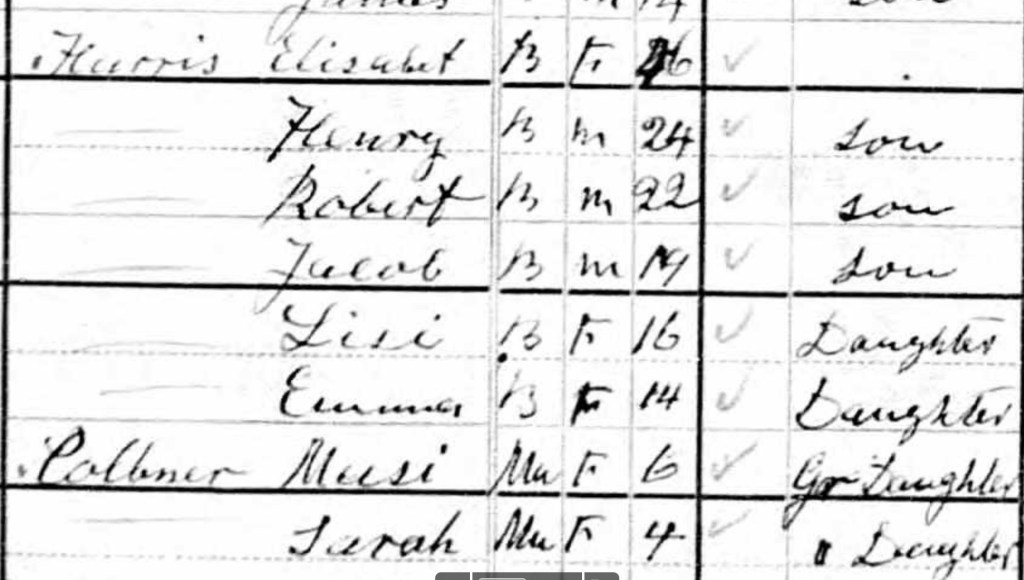 James m 14 son
Harris Elisabet B F 46
Henry B m 24 son
Robert B m 22 son
Jacob B m 19 son
Lisi B F 16 Daughter
Emma B F 14 Daughter
Mu F 6 Gr Daughter
Sarah Mu F 4 " Daughter